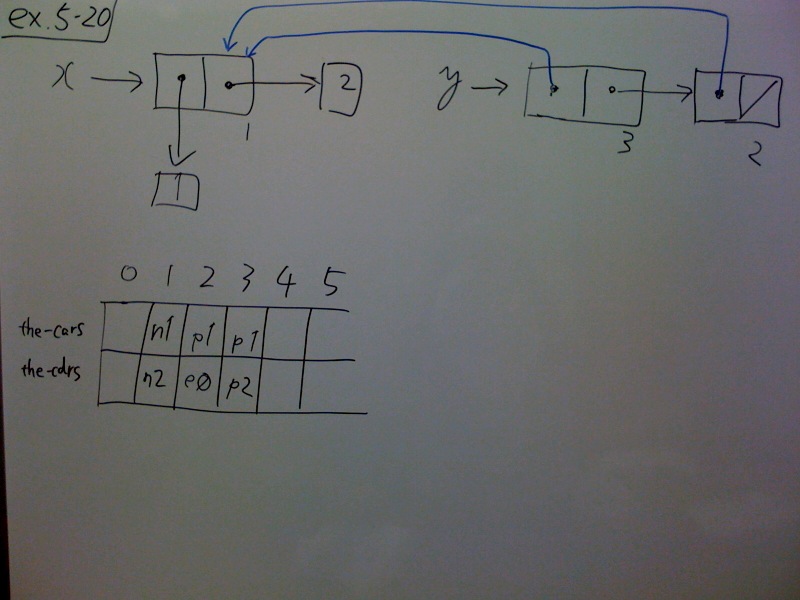 ex.5-20
x 2 y
1 3 2
1
0 1 2 3 4 5
the-cars n1 p1 p1
the-cdrs n2 e0 p2